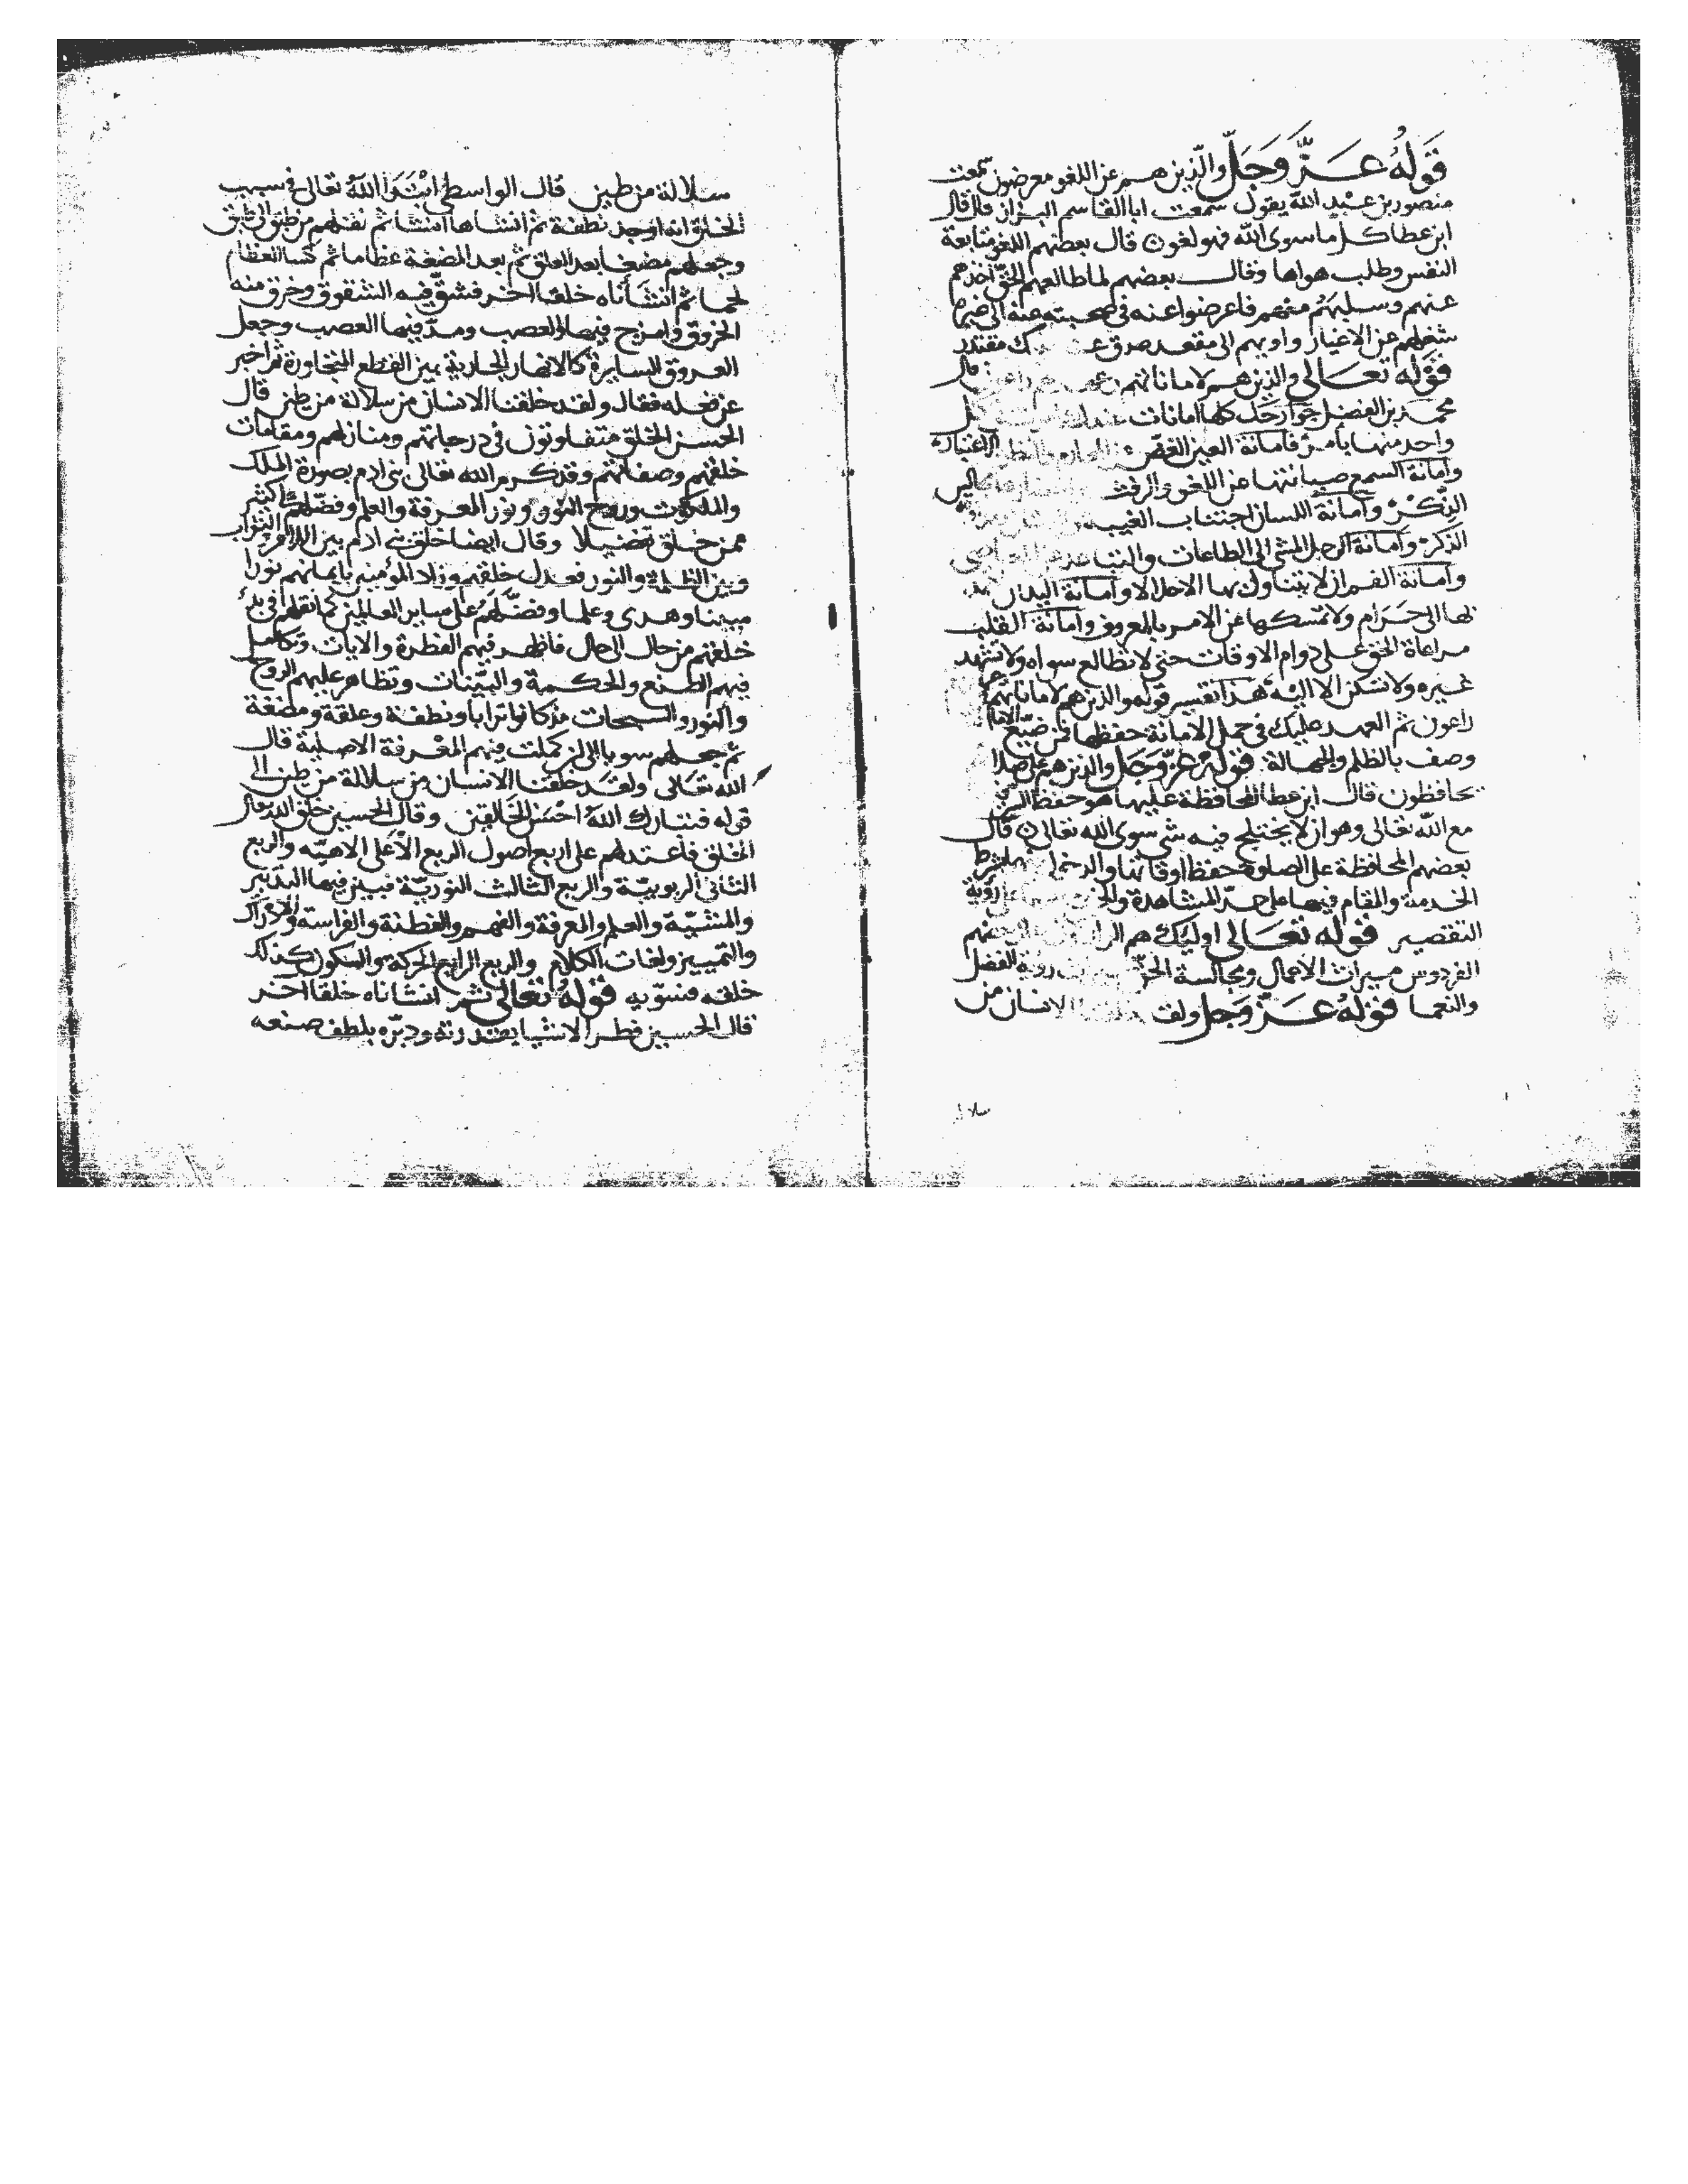 قَولهُ عَزَّ وَجَلَّ والّذين هم عن اللغو معرضون سمعت
منصور بن عبد الله يقول سمعت ابا القاسم البزاز قال قال
ابن عطا كل ما سوى الله فهو لغو ن قال بعضهم اللغو متابعة
النفس وطلب هواها وقال بعضهم لما طالعهم الحقّ اخذهم
عنهم وسلبهم منهم فاعرضوا عنه في صحبته منه الى
شغلهم عن الاغيار واويهم الى مقعد صدق مقتدر
قوله تعَالى والذين هم لاماناتهم قال
محمد بن الفضل جوارحك كلها امانات عندك
واحد منها بامر فامانة العين الغضّ عن المحارم والنظر الاعتبار
وامانة السمع صيانتها عن اللغو والرفث
الذِكر وامانة اللسان اجتناب الغيبه
الذكر وامانة الرجل المشي الى الطاعات والتباعد
وامانة الفم ان لا يتناول بها الا حلالا وامانة اليد ان
لها الى حَرَام ولا تمسكها عن الامر بالمعروف وامانة القلب
مراعاة الحق على دوام الاوقات حتى لا تطالع سواه ولا تشهد
غيره ولا تسكن الا اليه هذا تفسير قوله والذين هم لاماناتهم
راعون ثم العهد عليك في حمل الامانة حفظها فمن ضيّع
وصف بالظلم والجهالة قوله عزّ وَجَل والذين هم على صلا
يحافظون قال ابن عطا المحافظة عليها هو حفظ السر
مع الله تعالى وهو ان لا يختلج فيه شي سوى الله تعالى ن قال
بعضهم المحافظة على الصلوة حفظ اوقاتها والدخول بشرط
الخدمة والمقام فيها على حدّ المشاهدة رؤية
التقصير قوله تعَالى اوليك هم
الفردوس ميراث الاعمال ومجالسة رؤية الفضل
والنعما قوله عَزّ وَجل ولقد الانسان من
سلا
سلالة من طين قال الواسطي ابتدا اللهُ تعالى في سبب
الخلق انه اوجد نطفة ثم انشاها انشا ثم نقلهم من طبق الى طبق
وجعلهم مضغا بعد العلق ثم بعد المضغة عظاما ثم كسا العظام
لحما ثم انشأناه خلقا اخر فشقّ فيه الشقوق وخرق منه
الخروق وامزج فيها العصب ومدّ فيها العصب وجعل
العروق السايرة كالانهار الجارية بين القطع المتجاورة ثم اخبر
عن فعله فقال ولقد خلقنا الانسان من سلالة من طين قال
الحسين الخلق متفاوتون في درجاتهم ومنازلهم ومقامات
خلقهم وصفاتهم وقد كرم الله تعالى بني ادم بصورة الملك
والملكوت وروح النور ونور المعرفة والعلم وفضّلهم على كثير
ممن خلق تفضيلا وقال ايضا خلق بني ادم بين الما والتراب
وبين الظلمة والنور فعدل خلقهم وزاد المؤمنين بايمانهم نورا
مبينا وهدى وعلما وفضّلهم على ساير العالمين كما نقلهم في بدئ
خلقهم من حال الى حال فاظهر فيهم الفطرة والايات وتكامل
فيهم الصنع والحكمة والبيّنات وتظاهر عليهم الروح
والنور والسبحات مذ كانوا ترابا ونطفة وعلقة ومضغة
ثم جعلهم سويا الى ان كملت فيهم المعرفة الاصلية قال
الله تعَالى ولقد خلقنا الانسان من سلالة من طين الى
قوله فتبارك اللهُ احسَن الخالقين وقال الحسين خلق الله تعالى
الخلق فاعتدلهم على اربع اصول الربع الاعلى الاهيّه والربع
الثاني الربوبيّة والربع الثالث النوريّة فبين فيها التدبير
والمشيّة والعلم والمعرفة والفهم والفطنة والفراسة والادراك
والتمييز ولغات الكلام والربع الرابع الحركة والسكون كذلك
خلقه فسوّيه قوله تعَالى ثم انشاناه خلقا اخر
قال الحسين فطر الاشيا بقدرته ودبّره بلطف صنعه